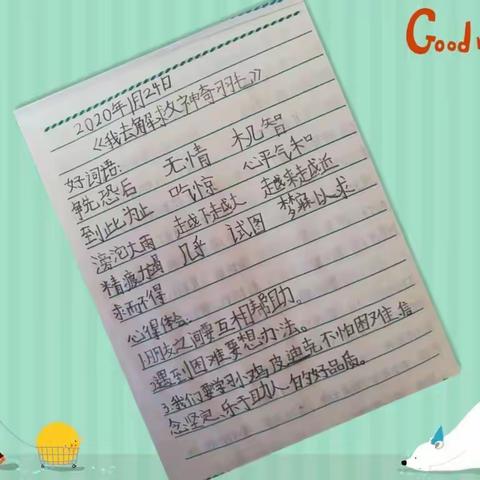 Good
2020年1月24日
《我去解救神奇羽毛》
好词语:
争先恐后 无情 机智
到此为止 吃惊 心平气和
滂沱大雨 越下越大 越来越近
精疲力竭 几乎 试图 梦寐以求
求而不得
心得体会:
1.朋友之间要互相帮助。
遇到困难要想办法。
3.我们要学习小鸡皮迪克不怕困难、信
念坚定、乐于助人的好品质。